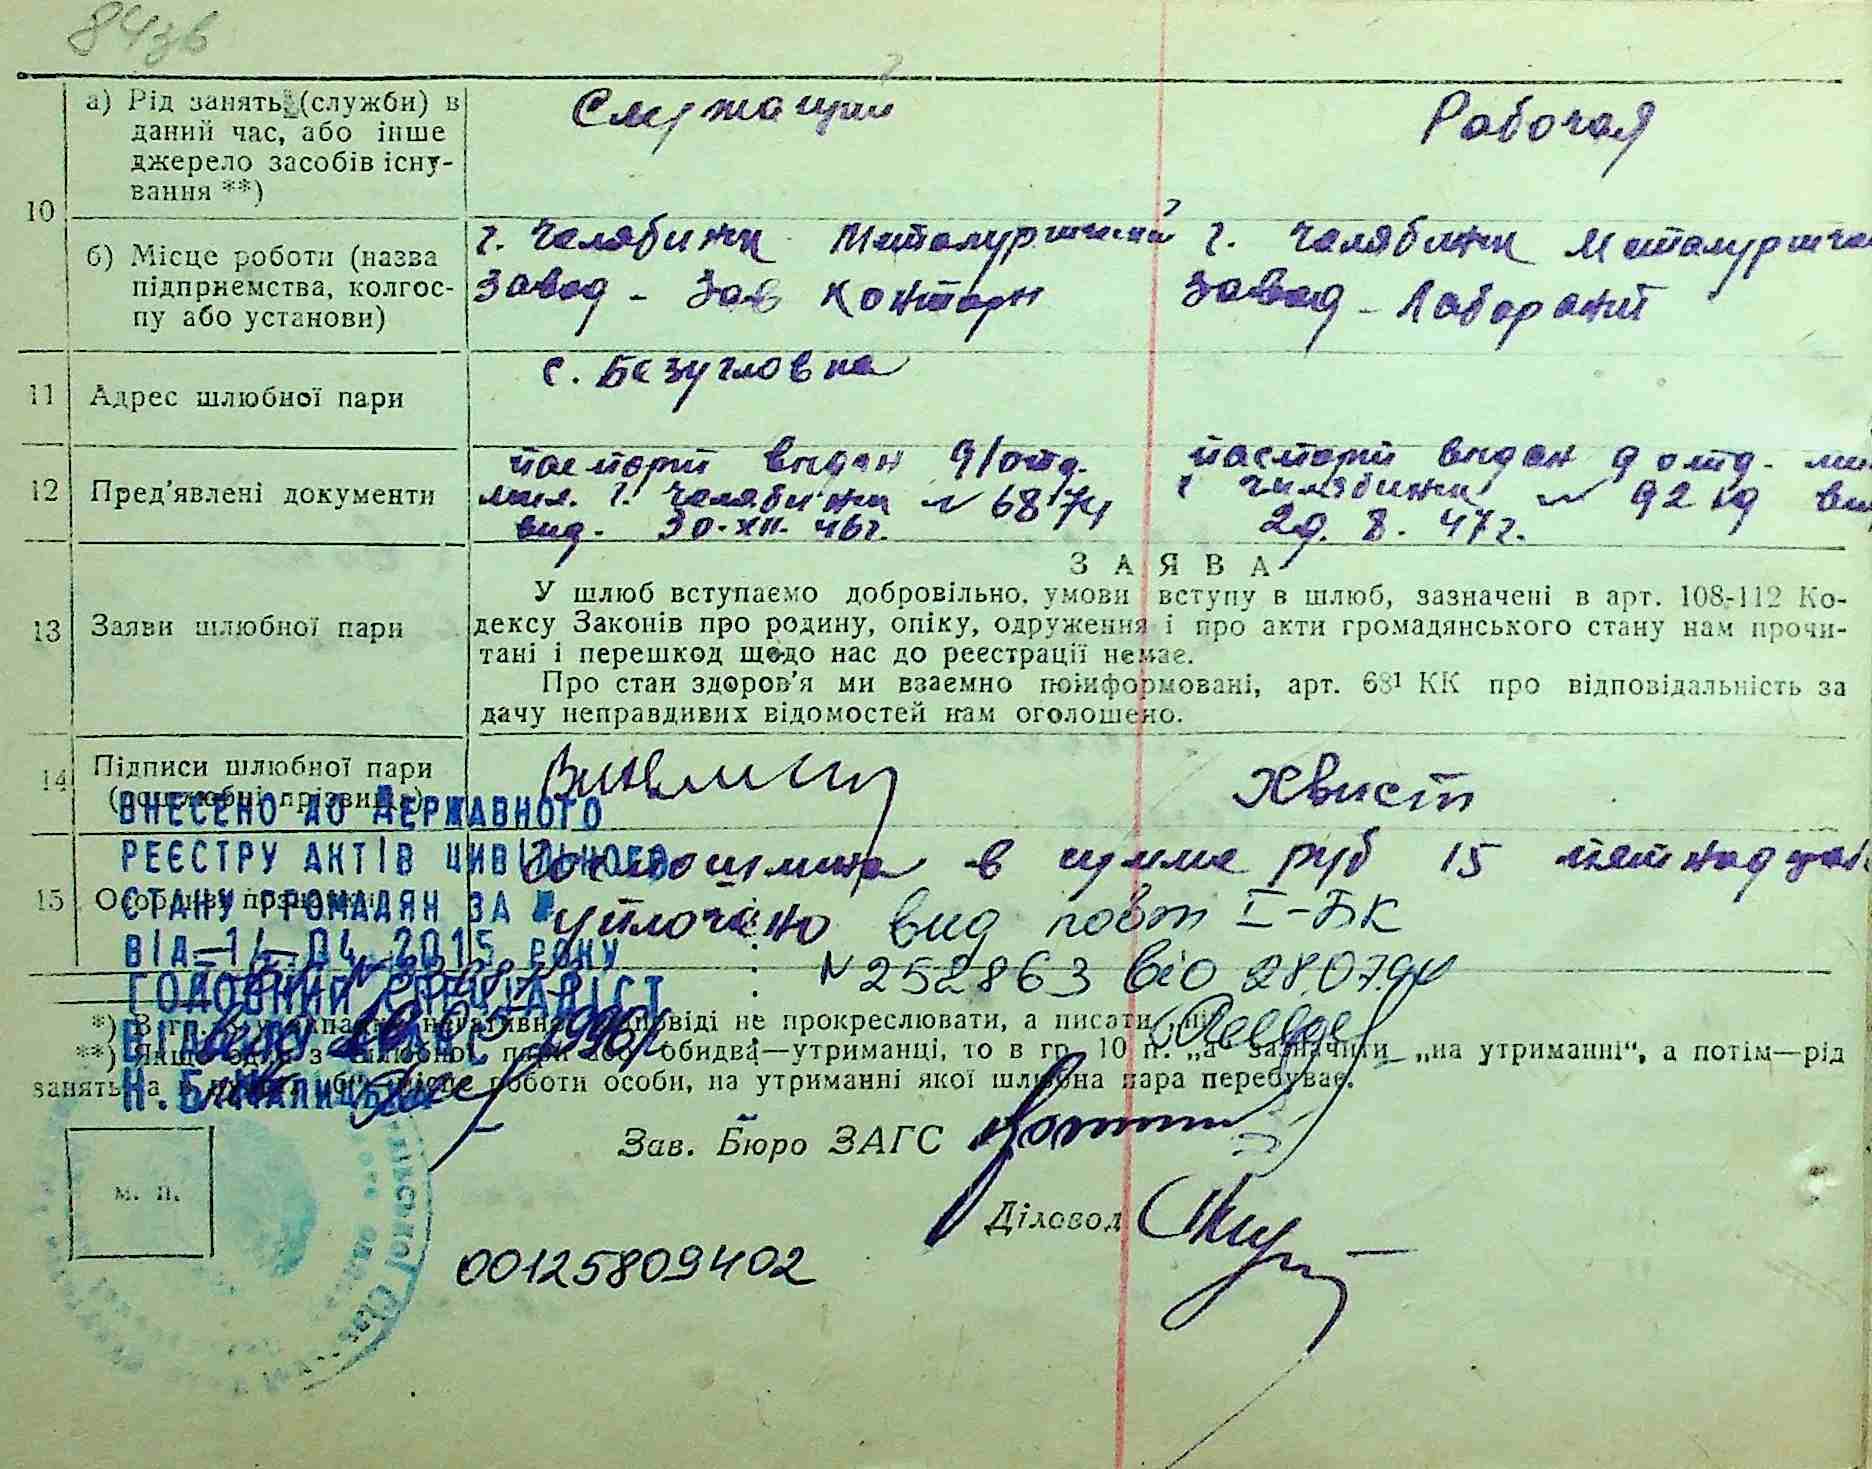 843в
10
а) Рід занять (служби) в даний час, або інше джерело засобів існування **)
Служащий
Рабочая
б) Місце роботи (назва підприємства, колгоспу або установи)
г. Челябинск Металургический
завод - Зав конторы
г. Челябинск Металургичес
завод - Лаборант
11 Адрес шлюбної пари
с. Безугловка
12 Пред'явлені документи
паспорт видан 9/отд.
мил. г. Челябинска № 6874
вид. 30.XII.46г.
паспорт видан 9 отд. мил
г Челябинска №
29. 8. 47г.
13 Заяви шлюбної пари
ЗАЯВА
У шлюб вступаємо добровільно, умови вступу в шлюб, зазначені в арт. 108-112 Ко-
дексу Законів про родину, опіку, одруження і про акти громадянського стану нам прочи-
тані і перешкод щодо нас до реєстрації немає.
Про стан здоров'я ми взаємно поінформовані, арт. 68¹ КК про відповідальність за
дачу неправдивих відомостей нам оголошено.
14 Підписи шлюбної пари
(дошлюбні прізвища)
Хвист
ВНЕСЕНО ДО ДЕРЖАВНОГО
РЕЄСТРУ АКТІВ ЦИВІЛЬНОГО
СТАНУ ГРОМАДЯН ЗА
ВІД 14 04 2015 РОКУ
ГОЛОВНИЙ СПЕЦІАЛІСТ
15
Госпошлина в сумме руб 15
уплочено вид повт І-БК
N 252863 від 28.07.94
*) В негативної відповіді не прокреслювати, а писати „ні“
**) Якщо один з шлюбної пари або обидва—утриманці, то в гр. 10 п. „а“ зазначити „на утриманні“, а потім—рід
занять, а місце роботи особи, на утриманні якої шлюбна пара перебуває.
Зав. Бюро ЗАГС
м. п.
Діловод
00125809402